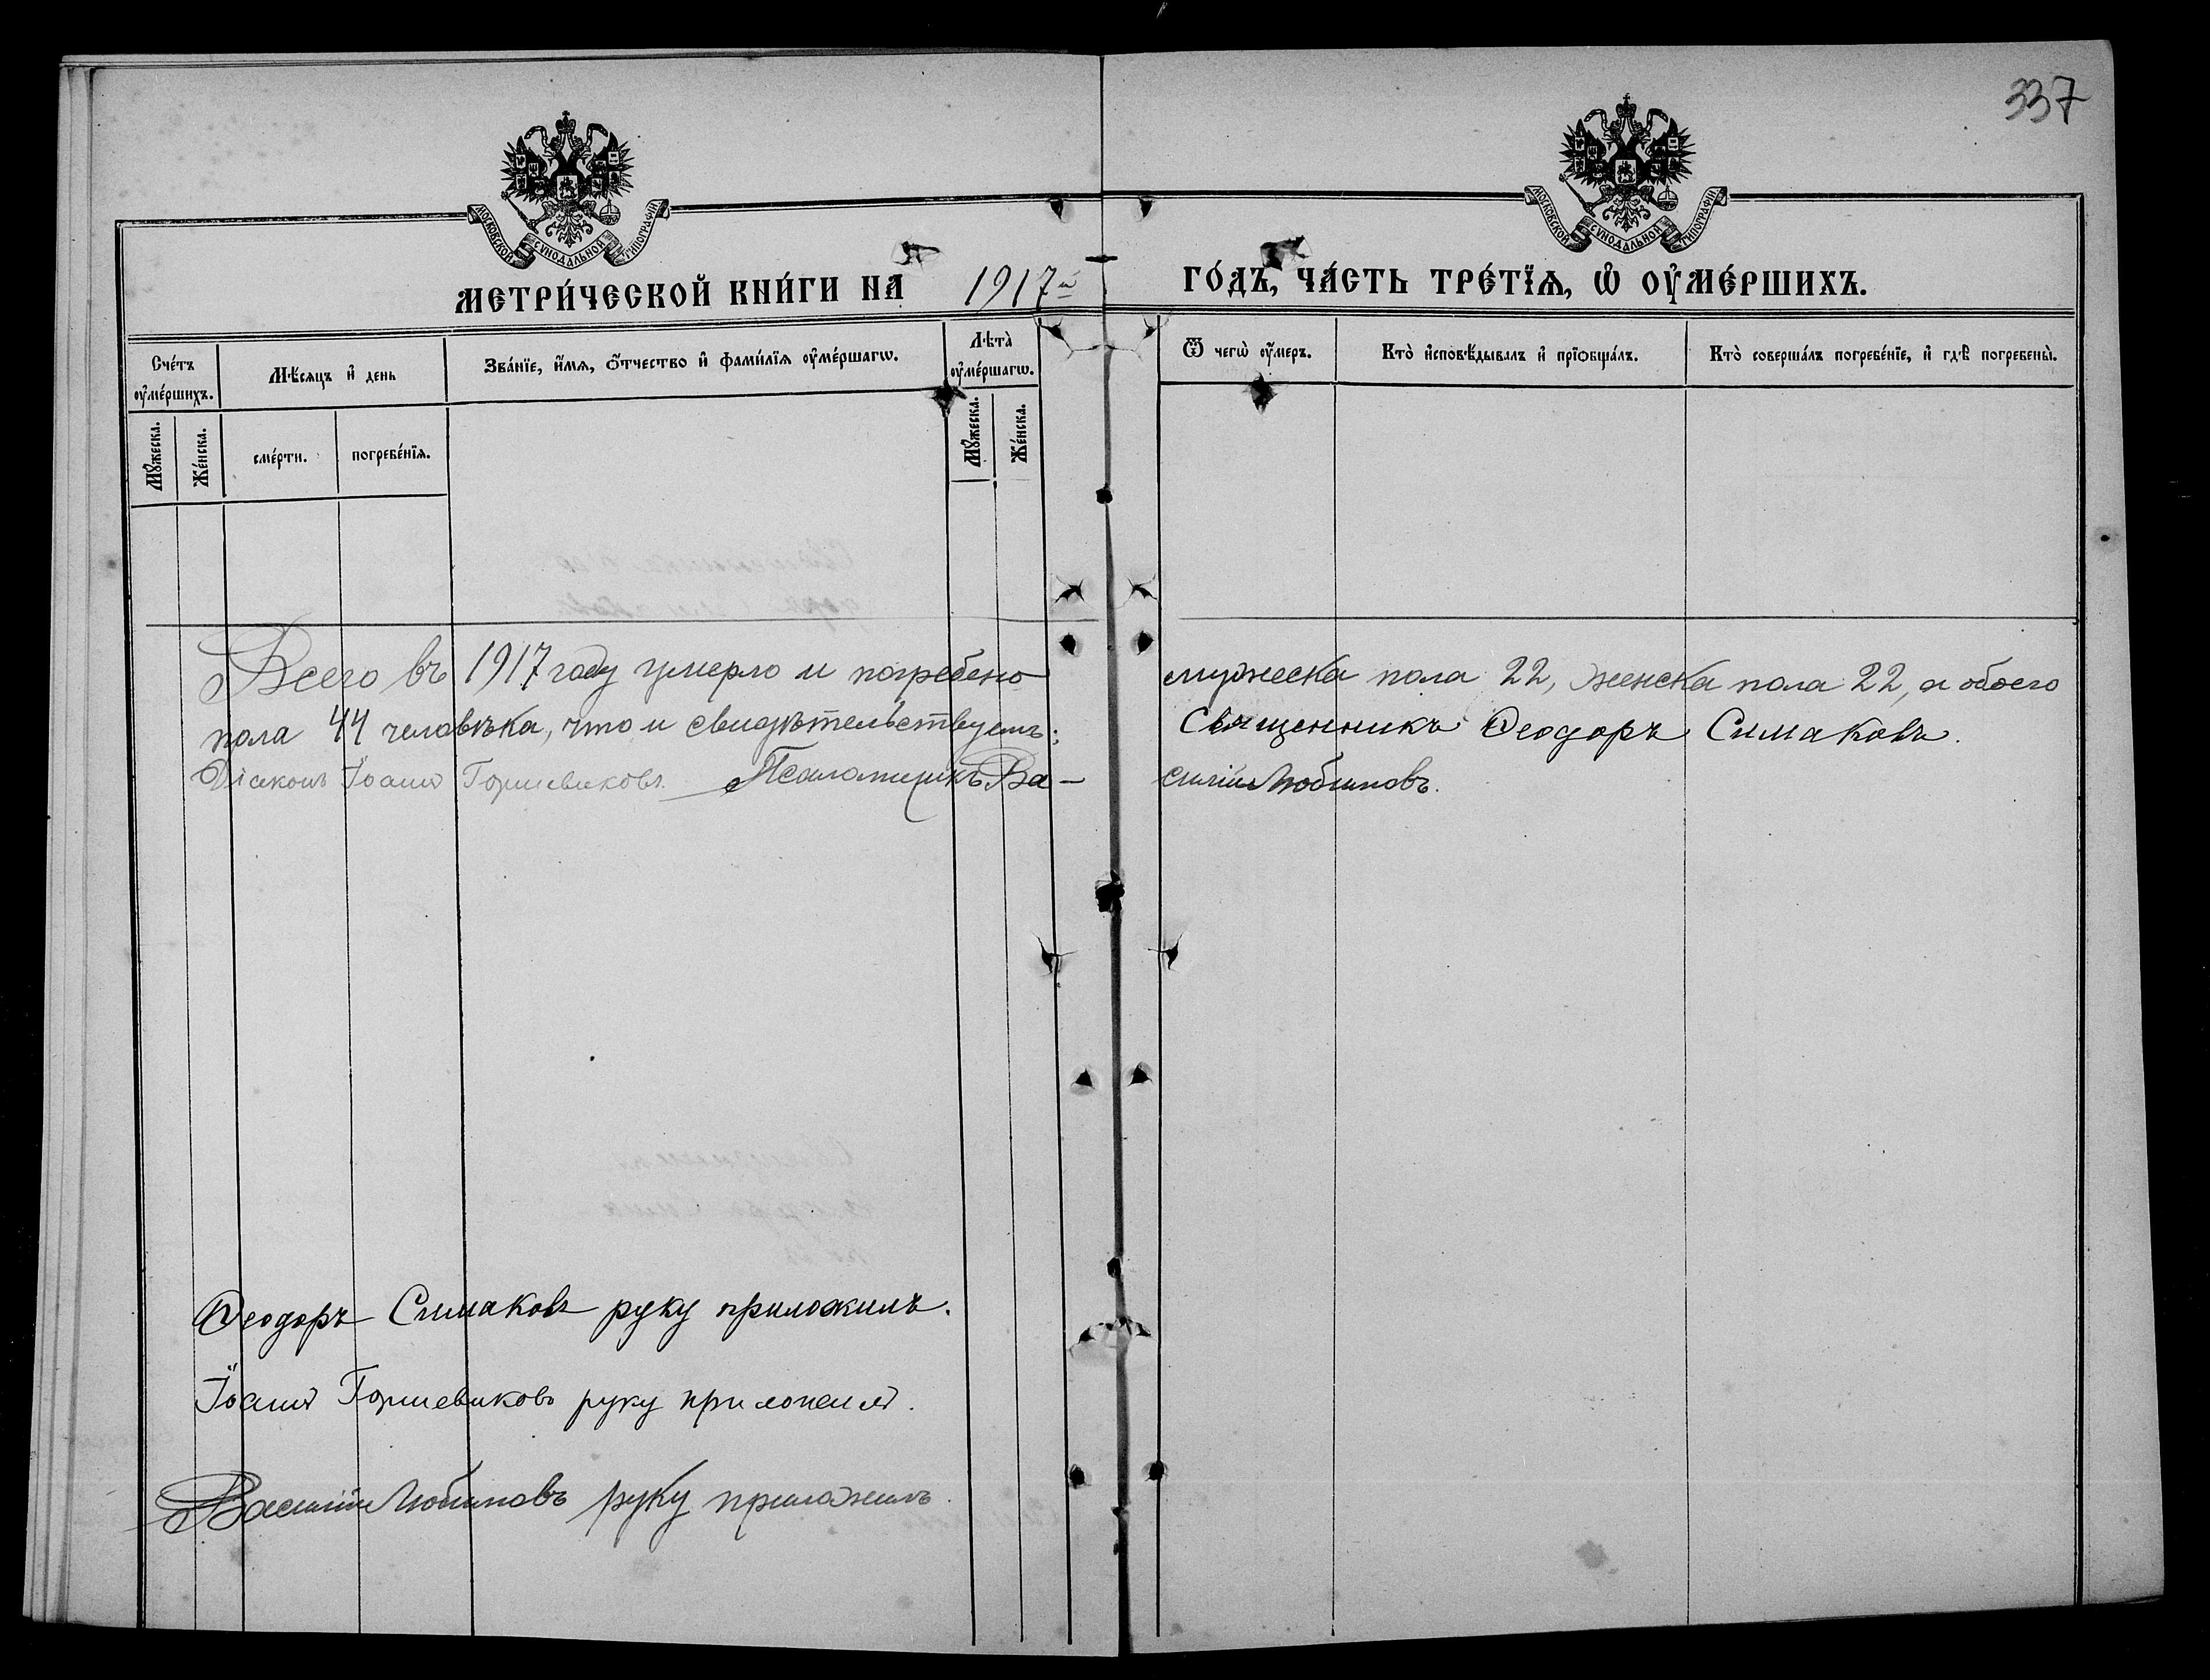 337
МОСКОВСКОЙ СѴНОДАЛЬНОЙ ТИПОГРАФІИ
МОСКОВСКОЙ СѴНОДАЛЬНОЙ ТИПОГРАФІИ
МЕТРИ́ЧЕСКОЙ КНИ́ГИ НА 1917й ГО́ДЪ, ЧА́СТЬ ТРЕ́ТЇѦ, Ѽ ОУ҆МЕ́РШИХЪ.
Сче́тъ оу҆ме́ршихъ.
Мѣ́сяцъ и҆ день
Зва́нїе, и҆́мѧ, ѻ҆́тчество и҆ фами́лїѧ оу҆ме́ршагѡ.
Лѣта̀ оу҆ме́ршагѡ.
Ѿ чегѡ̀ оу҆́меръ.
Кто̀ и҆сповѣ́дывалъ и҆ прїѻбща́лъ.
Кто̀ соверша́лъ погребе́нїе, и҆ гдѣ̀ погребены̀.
Мꙋ́жеска.
Же́нска.
сме́рти.
погребе́нїѧ.
Мꙋ́жеска.
Же́нска.
Всего въ 1917 году умерло и погребено мужеска пола 22, женска пола 22, а обоего
пола 44 человѣка, что и свидѣтельствуемъ: Священникъ Ѳеодоръ Симаковъ.
Діаконъ Іоаннъ Псаломщикъ Василій Любимовъ.
Ѳеодоръ Симаковъ руку приложилъ.
Іоаннъ руку приложилъ.
Василій Любимовъ руку приложилъ.